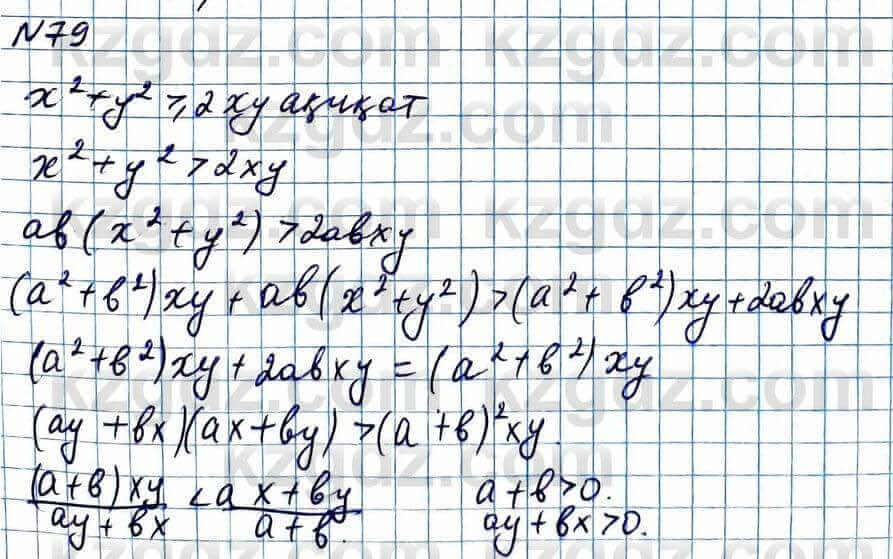 N79
x² + y² ⩾ 2xy ақиқат
x² + y² > 2xy
ab(x² + y²) > 2abxy
(a² + b²)xy + ab(x² + y²) > (a² + b²)xy + 2abxy
(a² + b²)xy + 2abxy = (a² + b²)xy
(ay + bx)(ax + by) > (a + b)²xy.
(a+b)xy / ay + bx < ax + by / a + b. a + b > 0.
ay + bx > 0.
kzgdz.com